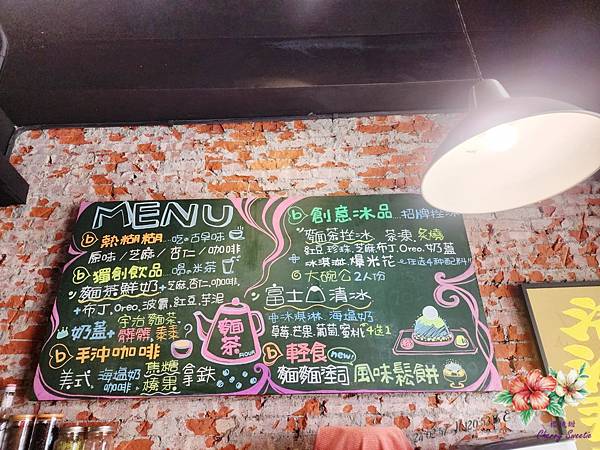 MENU
熱糊糊...吃。古早味
原味/芝麻/杏仁/咖啡
獨創飲品 喝。米茶
麵茶鮮奶+芝麻.杏仁.咖啡
+布丁.Oreo.波霸.紅豆.芋泥
奶蓋+宇治麵茶.
髒髒
手沖咖啡
美式.海塩奶咖啡.焦糖 榛果 拿鐵
麵茶
FLOUR
創意冰品...招牌挫冰
麵茶挫冰 茶凍.
紅豆.珍珠.芝麻布丁.Oreo.奶蓋
冰淇淋.爆米花 任選4種配料!!
大碗公2人份
富士山清冰
+冰淇淋.海塩奶
草莓.芒果.葡萄.蜜桃 4選1
輕食 new!
麵麵塗司 風味鬆餅
Cherry Sweetie